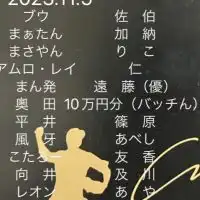 2023.11.3
ブウ 佐伯
まぁたん 加納
まさやん りこ
アムロ・レイ 仁
まん発 遠藤（優）
奥田 10万円分（バッチん）
平井 篠原
風牙 あべし
こたろー 友香
向井 及川
レオン あや